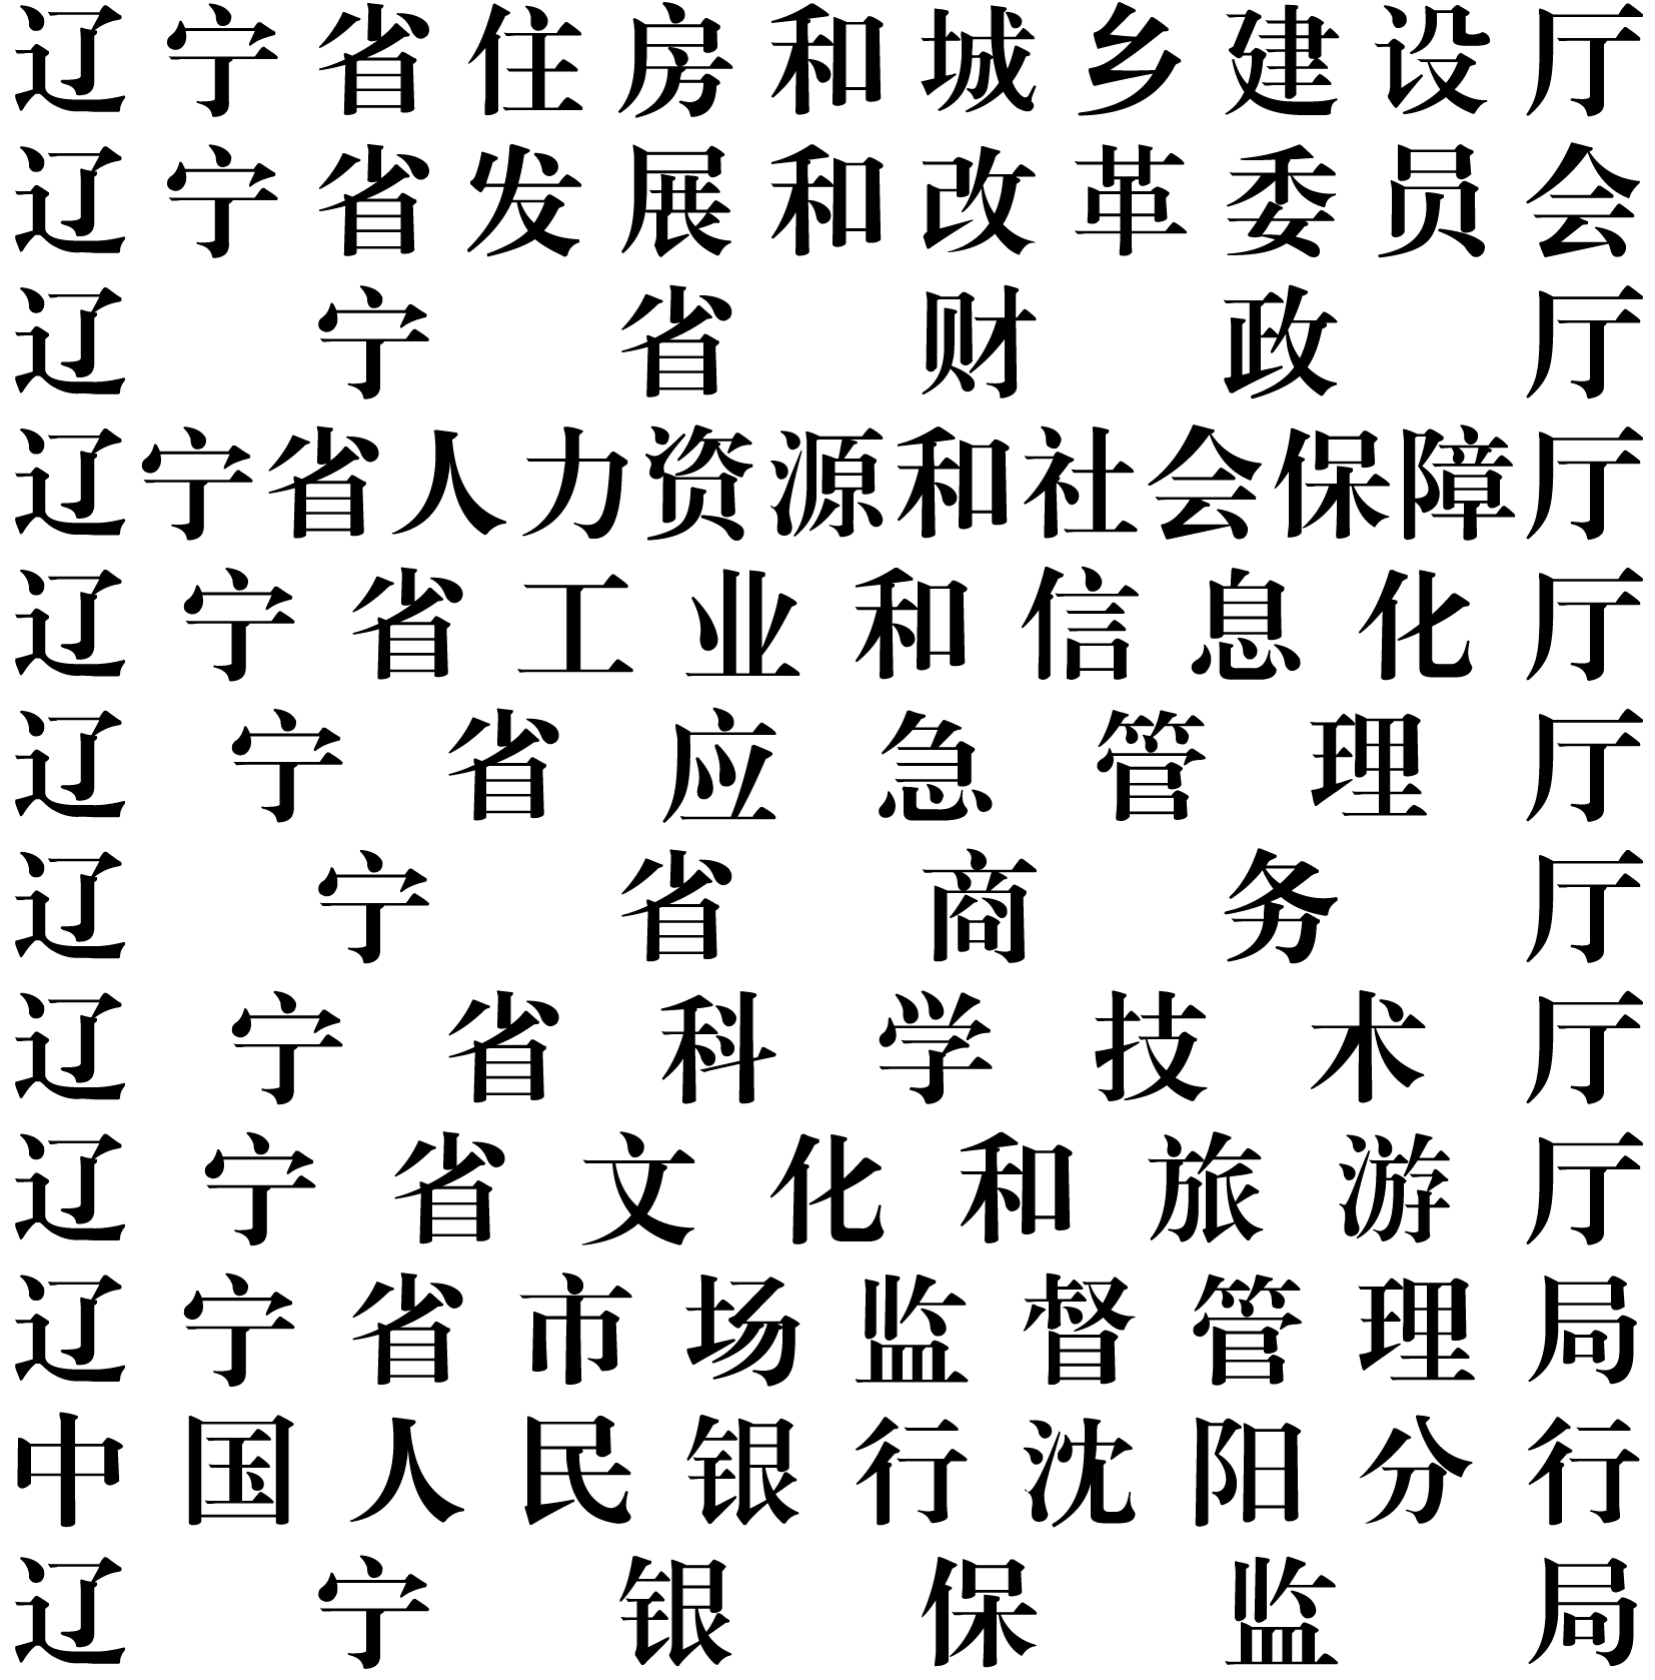 辽宁省住房和城乡建设厅
辽宁省发展和改革委员会
辽宁省财政厅
辽宁省人力资源和社会保障厅
辽宁省工业和信息化厅
辽宁省应急管理厅
辽宁省商务厅
辽宁省科学技术厅
辽宁省文化和旅游厅
辽宁省市场监督管理局
中国人民银行沈阳分行
辽宁银保监局